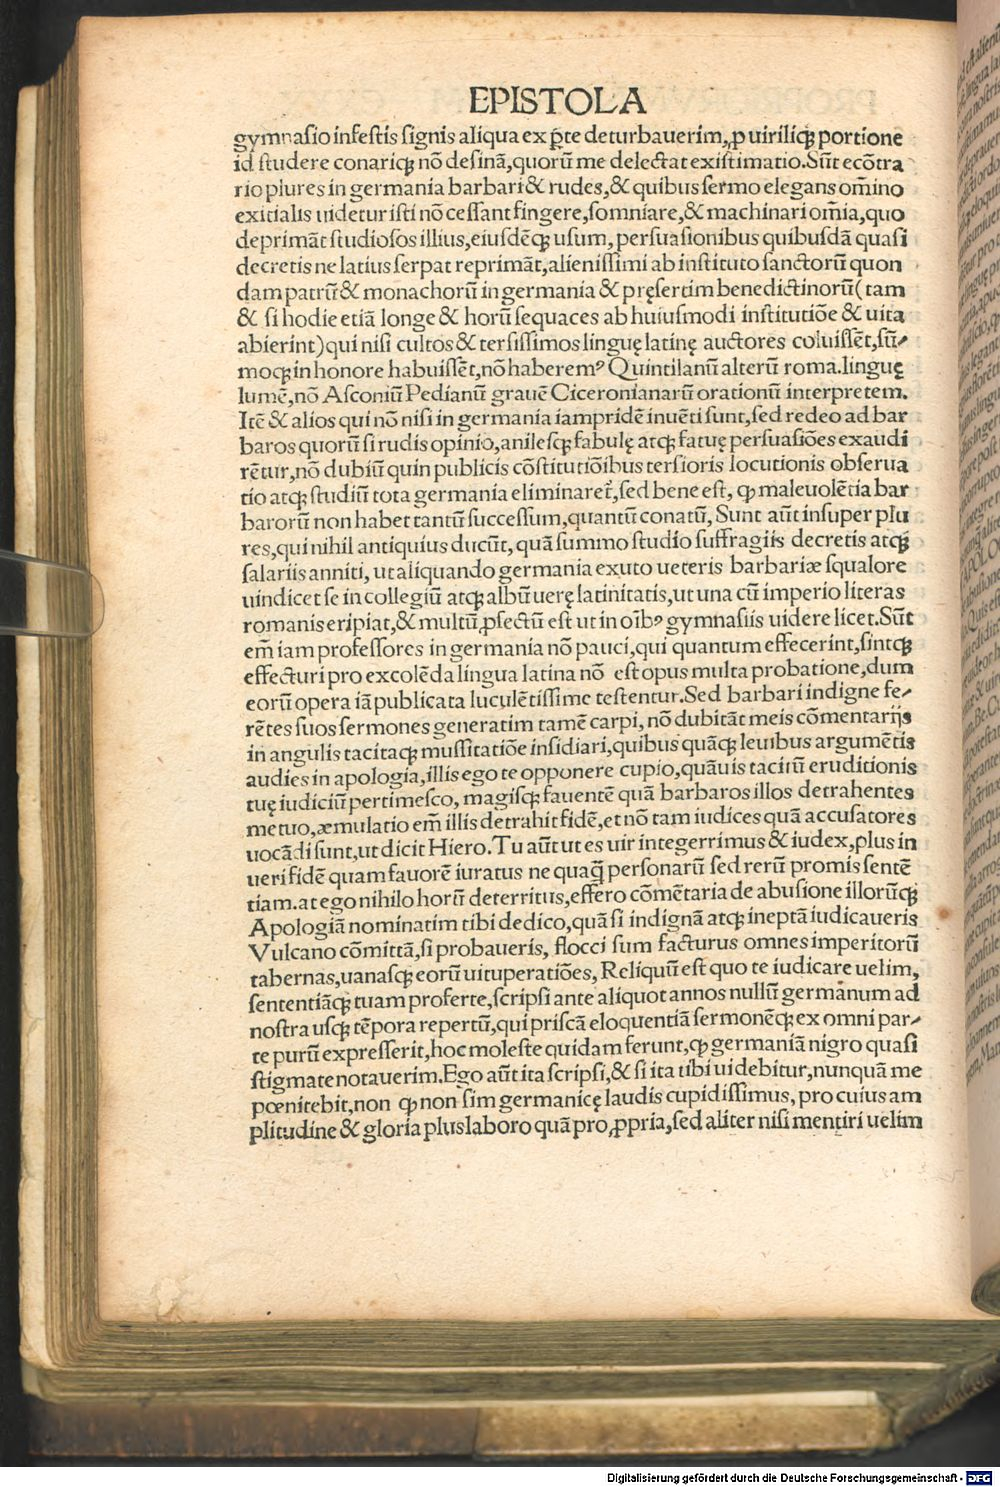 EPISTOLA
gymnasio infestis signis aliqua ex ꝑte deturbauerim, ꝓ uiriliqꝫ portione
id studere conariqꝫ nō desinā, quorū me delectat existimatio. Sūt ecōtra
rio plures in germania barbari & rudes, & quibus sermo elegans om̄ino
exitialis uidetur isti nō cessant fingere, somniare, & machinari om̄ia, quo
deprimāt studiosos illius, eiusdēqꝫ usum, persuasionibus quibusdā quasi
decretis ne latius serpat reprimāt, alienissimi ab instituto sanctorū quon
dam patrū & monachorū in germania & pręsertim benedictinorū (tam
& si hodie etiā longe & horū sequaces ab huiusmodi institutiōe & uita
abierint) qui nisi cultos & tersissimos linguę latinę auctores coluissēt, sū⸗
moqꝫ in honore habuissēt, nō haberemꝰ Quintilanū alterū roma. linguę
lumē, nō Asconiū Pedianū grauē Ciceronianarū orationū interpretem.
Itē & alios qui nō nisi in germania iampridē inuēti sunt, sed redeo ad bar
baros quorū si rudis opinio, anilesqꝫ fabulę atqꝫ fatuę persuasiōes exaudi
rētur, nō dubiū quin publicis cōstitutiōibus tersioris locutionis obserua
tio atqꝫ studiū tota germania eliminaret̄, sed bene est, ꝙ maleuolētia bar
barorū non habet tantū successum, quantū conatū, Sunt aūt insuper plu
res, qui nihil antiquius ducūt, quā summo studio suffragiis decretis atqꝫ
salariis anniti, ut aliquando germania exuto ueteris barbariæ squalore
uindicet se in collegiū atqꝫ albū uerę latinitatis, ut una cū imperio literas
romanis eripiat, & multū ꝓfectū est ut in oībꝰ gymnasiis uidere licet. Sūt
em̄ iam professores in germania nō pauci, qui quantum effecerint, sintqꝫ
effecturi pro excolēda lingua latina nō est opus multa probatione, dum
eorū opera iā publicata luculētissime testentur. Sed barbari indigne fe⸗
rētes suos sermones generatim tamē carpi, nō dubitāt meis cōmentarijs
in angulis tacitaqꝫ mussitatiōe insidiari, quibus quāqꝫ leuibus argumētis
audies in apologia, illis ego te opponere cupio, quāuis tacitū eruditionis
tuę iudiciū pertimesco, magisqꝫ fauentē quā barbaros illos detrahentes
metuo, æmulatio em̄ illis detrahit fidē, et nō tam iudices quā accusatores
uocādi sunt, ut dicit Hiero. Tu aūt ut es uir integerrimus & iudex, plus in
ueri fidē quam fauorē iuratus ne quaqꝫ̄ personarū sed rerū promis sentē
tiam. at ego nihilo horū deterritus, effero cōmētaria de abusione illorūqꝫ
Apologiā nominatim tibi dedico, quā si indignā atqꝫ ineptā iudicaueris
Vulcano cōmittā, si probaueris, flocci sum facturus omnes imperitorū
tabernas, uanasqꝫ eorū uituperatiōes, Reliquū est quo te iudicare uelim,
sententiāqꝫ tuam proferre, scripsi ante aliquot annos nullū germanum ad
nostra usqꝫ tēpora repertū, qui priscā eloquentiā sermonēqꝫ ex omni par⸗
te purū expresserit, hoc moleste quidam ferunt, ꝙ germaniā nigro quasi
stigmate notauerim. Ego aūt ita scripsi, & si ita tibi uidebitur, nunquā me
pœnitebit, non ꝙ non sim germanicę laudis cupidissimus, pro cuius am
plitudine & gloria plus laboro quā pro ꝓpria, sed aliter nisi mentiri uelim
Digitalisierung gefördert durch die Deutsche Forschungsgemeinschaft - DFG